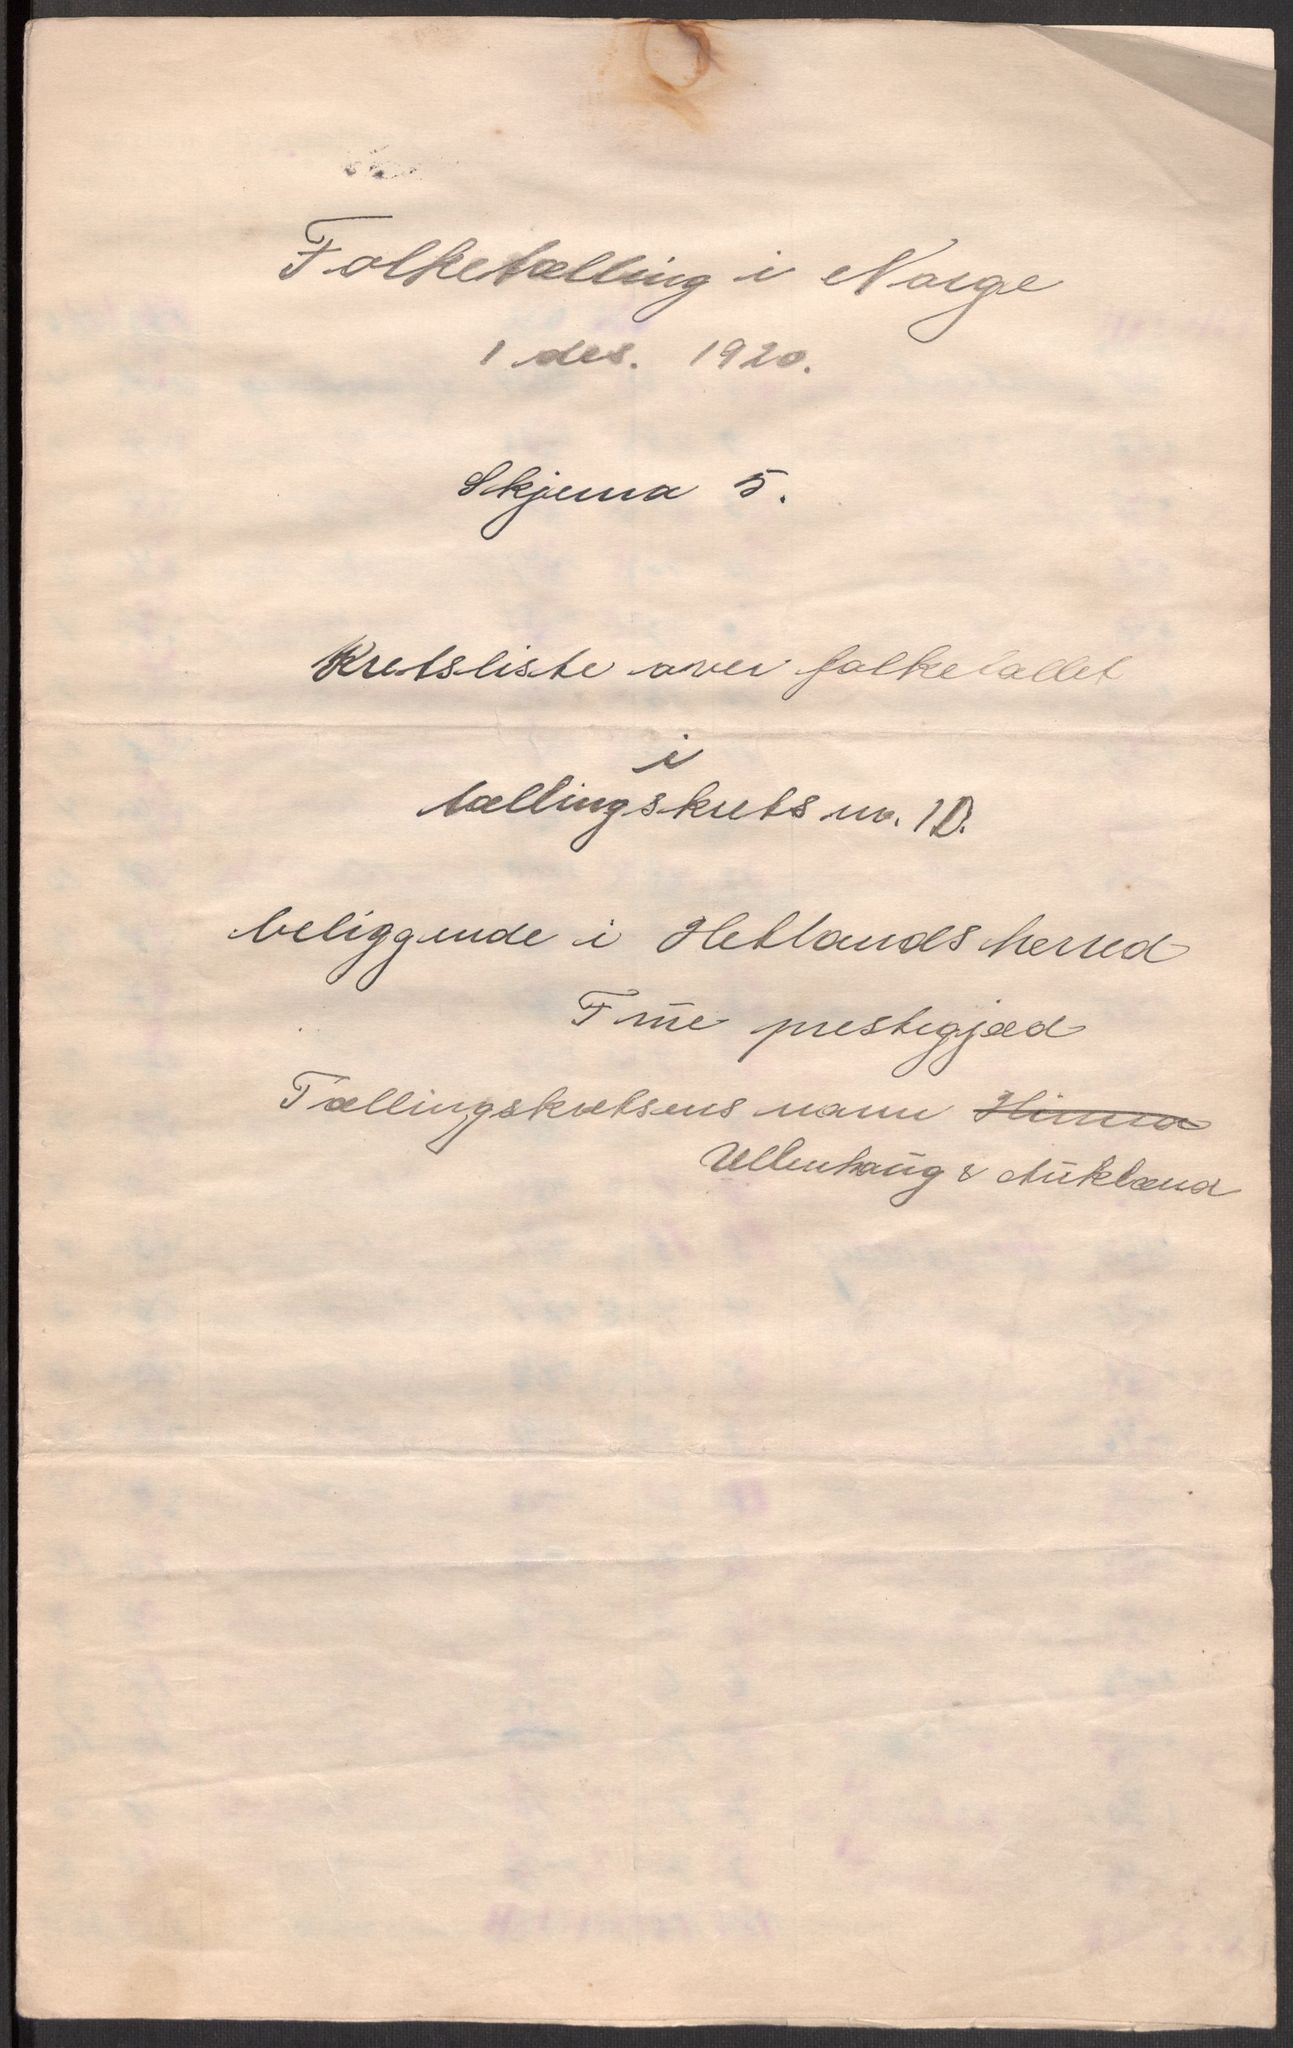 Folketælling i Norge
1 des. 1920.
Skjema 5.
Kretsliste over folketallet
i
tællingskrets nr. 10.
beliggende i Hetlands herred
Frue prestegjæld
Tællingskretsens navn Hinna
Ullenhaug & Aukland